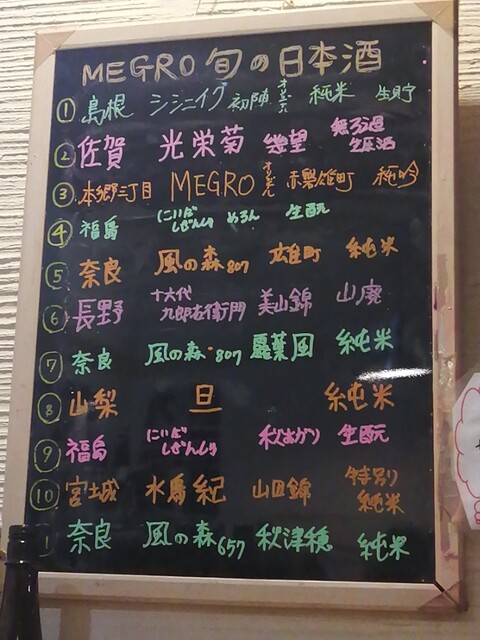 MEGRO 旬の日本酒
① 島根 シシニイグ 初陣 純米 生貯
② 佐賀 光栄菊 幾望 無ろ過 生原酒
③ 本郷三丁目 MEGRO 赤磐雄町 純吟
④ 福島 にいだしぜんしゅ めろん 生酛
⑤ 奈良 風の森 807 雄町 純米
⑥ 長野 十六代九郎右衛門 美山錦 山廃
⑦ 奈良 風の森・807 露葉風 純米
⑧ 山梨 旦 純米
⑨ 福島 にいだしぜんしゅ 秋あがり 生酛
⑩ 宮城 水鳥紀 山田錦 特別純米
奈良 風の森 657 秋津穂 純米